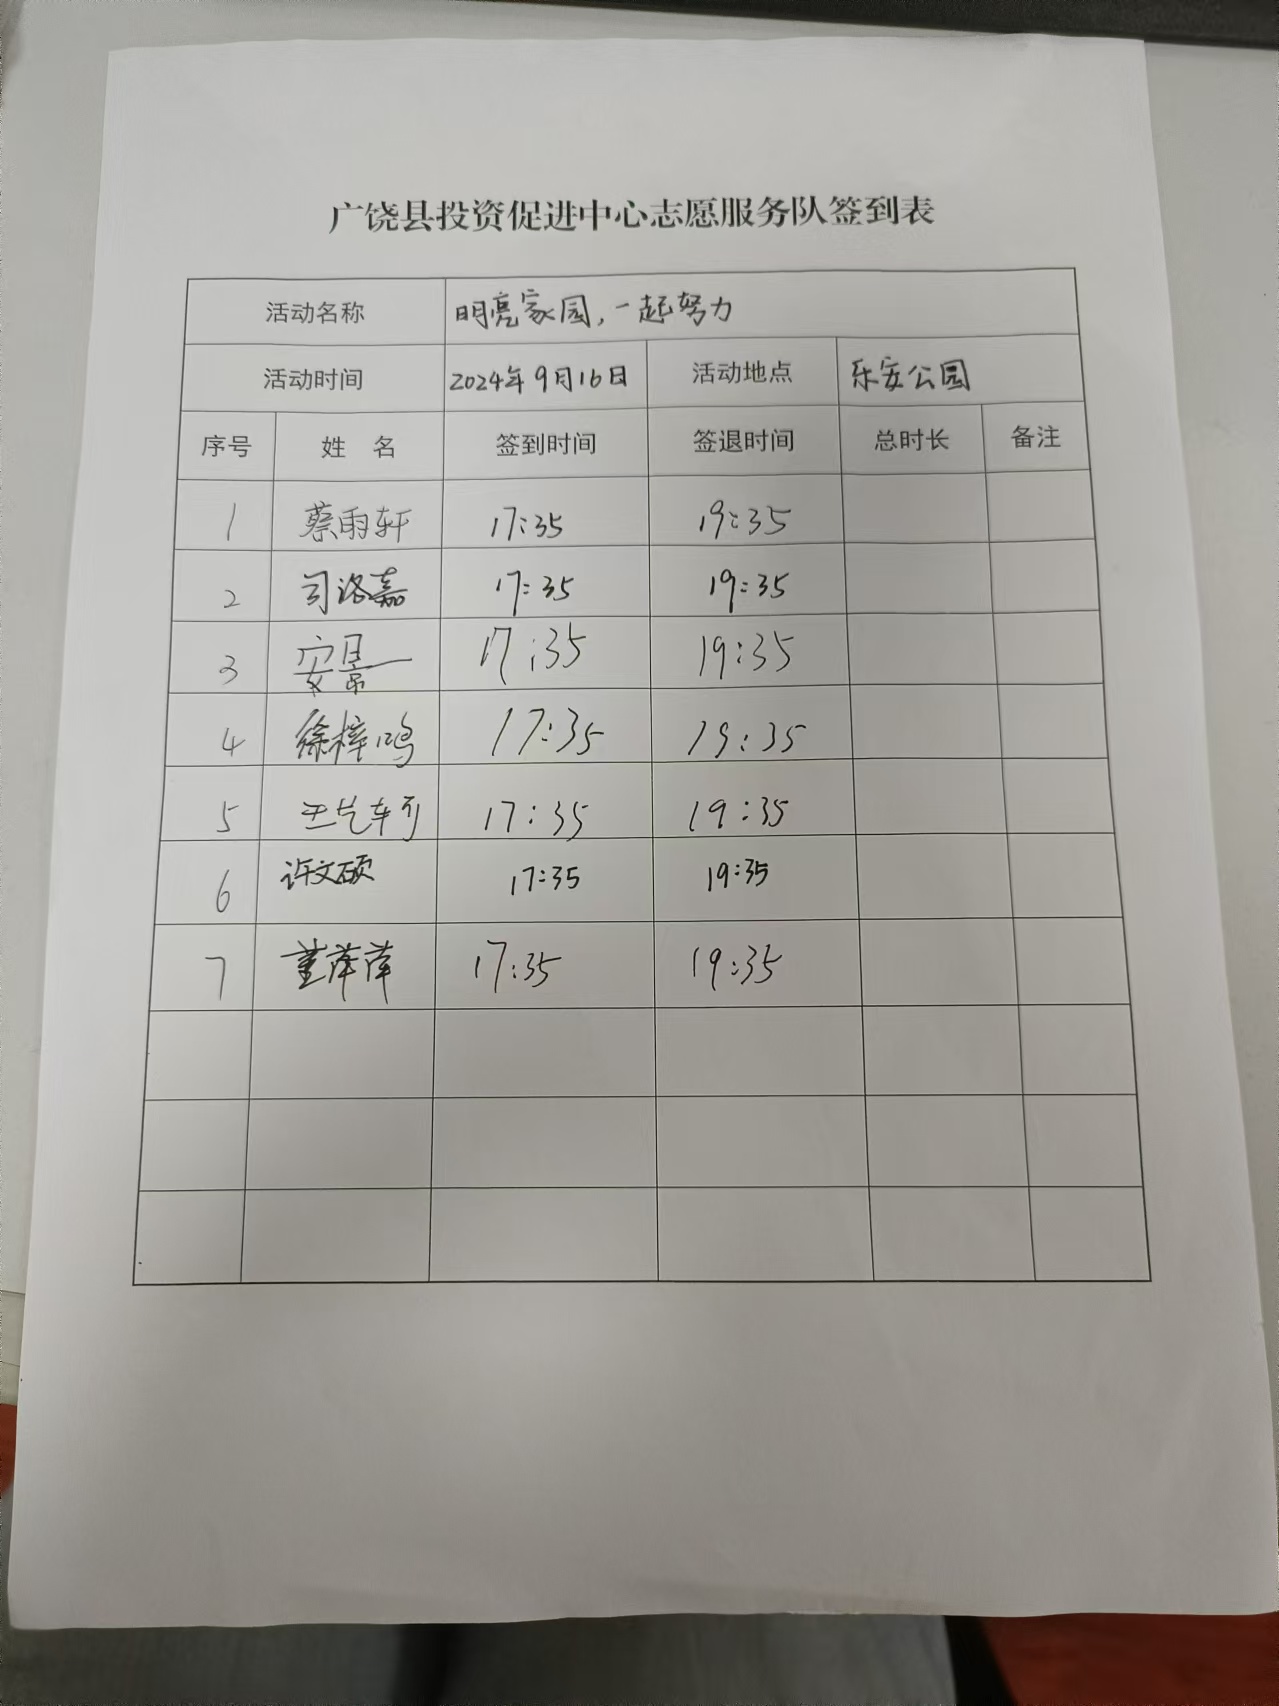 广饶县投资促进中心志愿服务队签到表
活动名称 明亮家园，一起努力
活动时间 2024年9月16日 活动地点 乐安公园
序号 姓 名 签到时间 签退时间 总时长 备注
1 蔡雨轩 17:35 19:35
2 司洛嘉 17:35 19:35
3 安景 17:35 19:35
4 徐梓鸣 17:35 19:35
5 17:35 19:35
6 许文硕 17:35 19:35
7 董萍萍 17:35 19:35